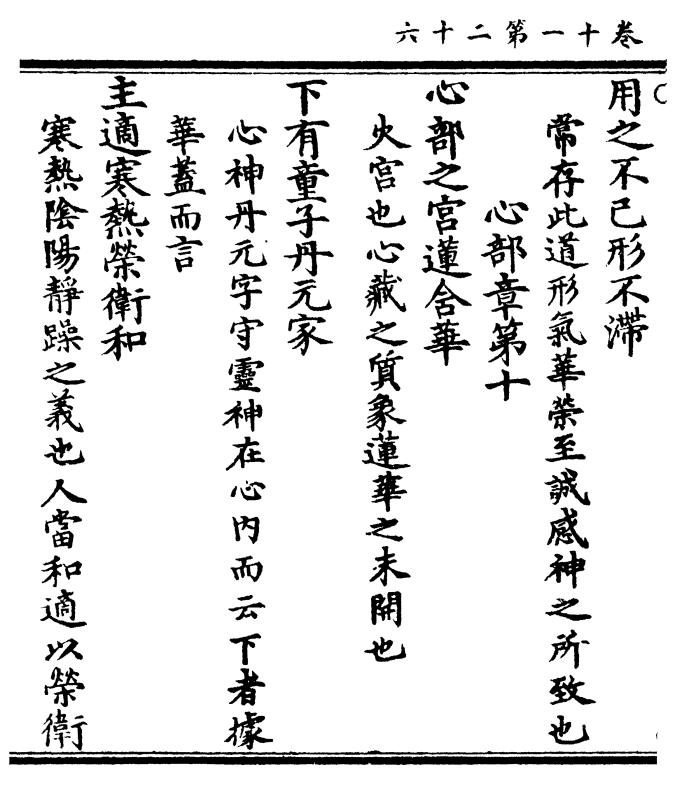 卷十一第二十六
用之不已形不滯
常存此道形氣華榮至誠感神之所致也
心部章第十
心部之宮蓮含華
火宮也心藏之質象蓮華之未開也
下有童子丹元家
心神丹元字守靈神在心內而云下者據
華蓋而言
主適寒熱榮衛和
寒熱陰陽靜躁之義也人當和適以榮衛